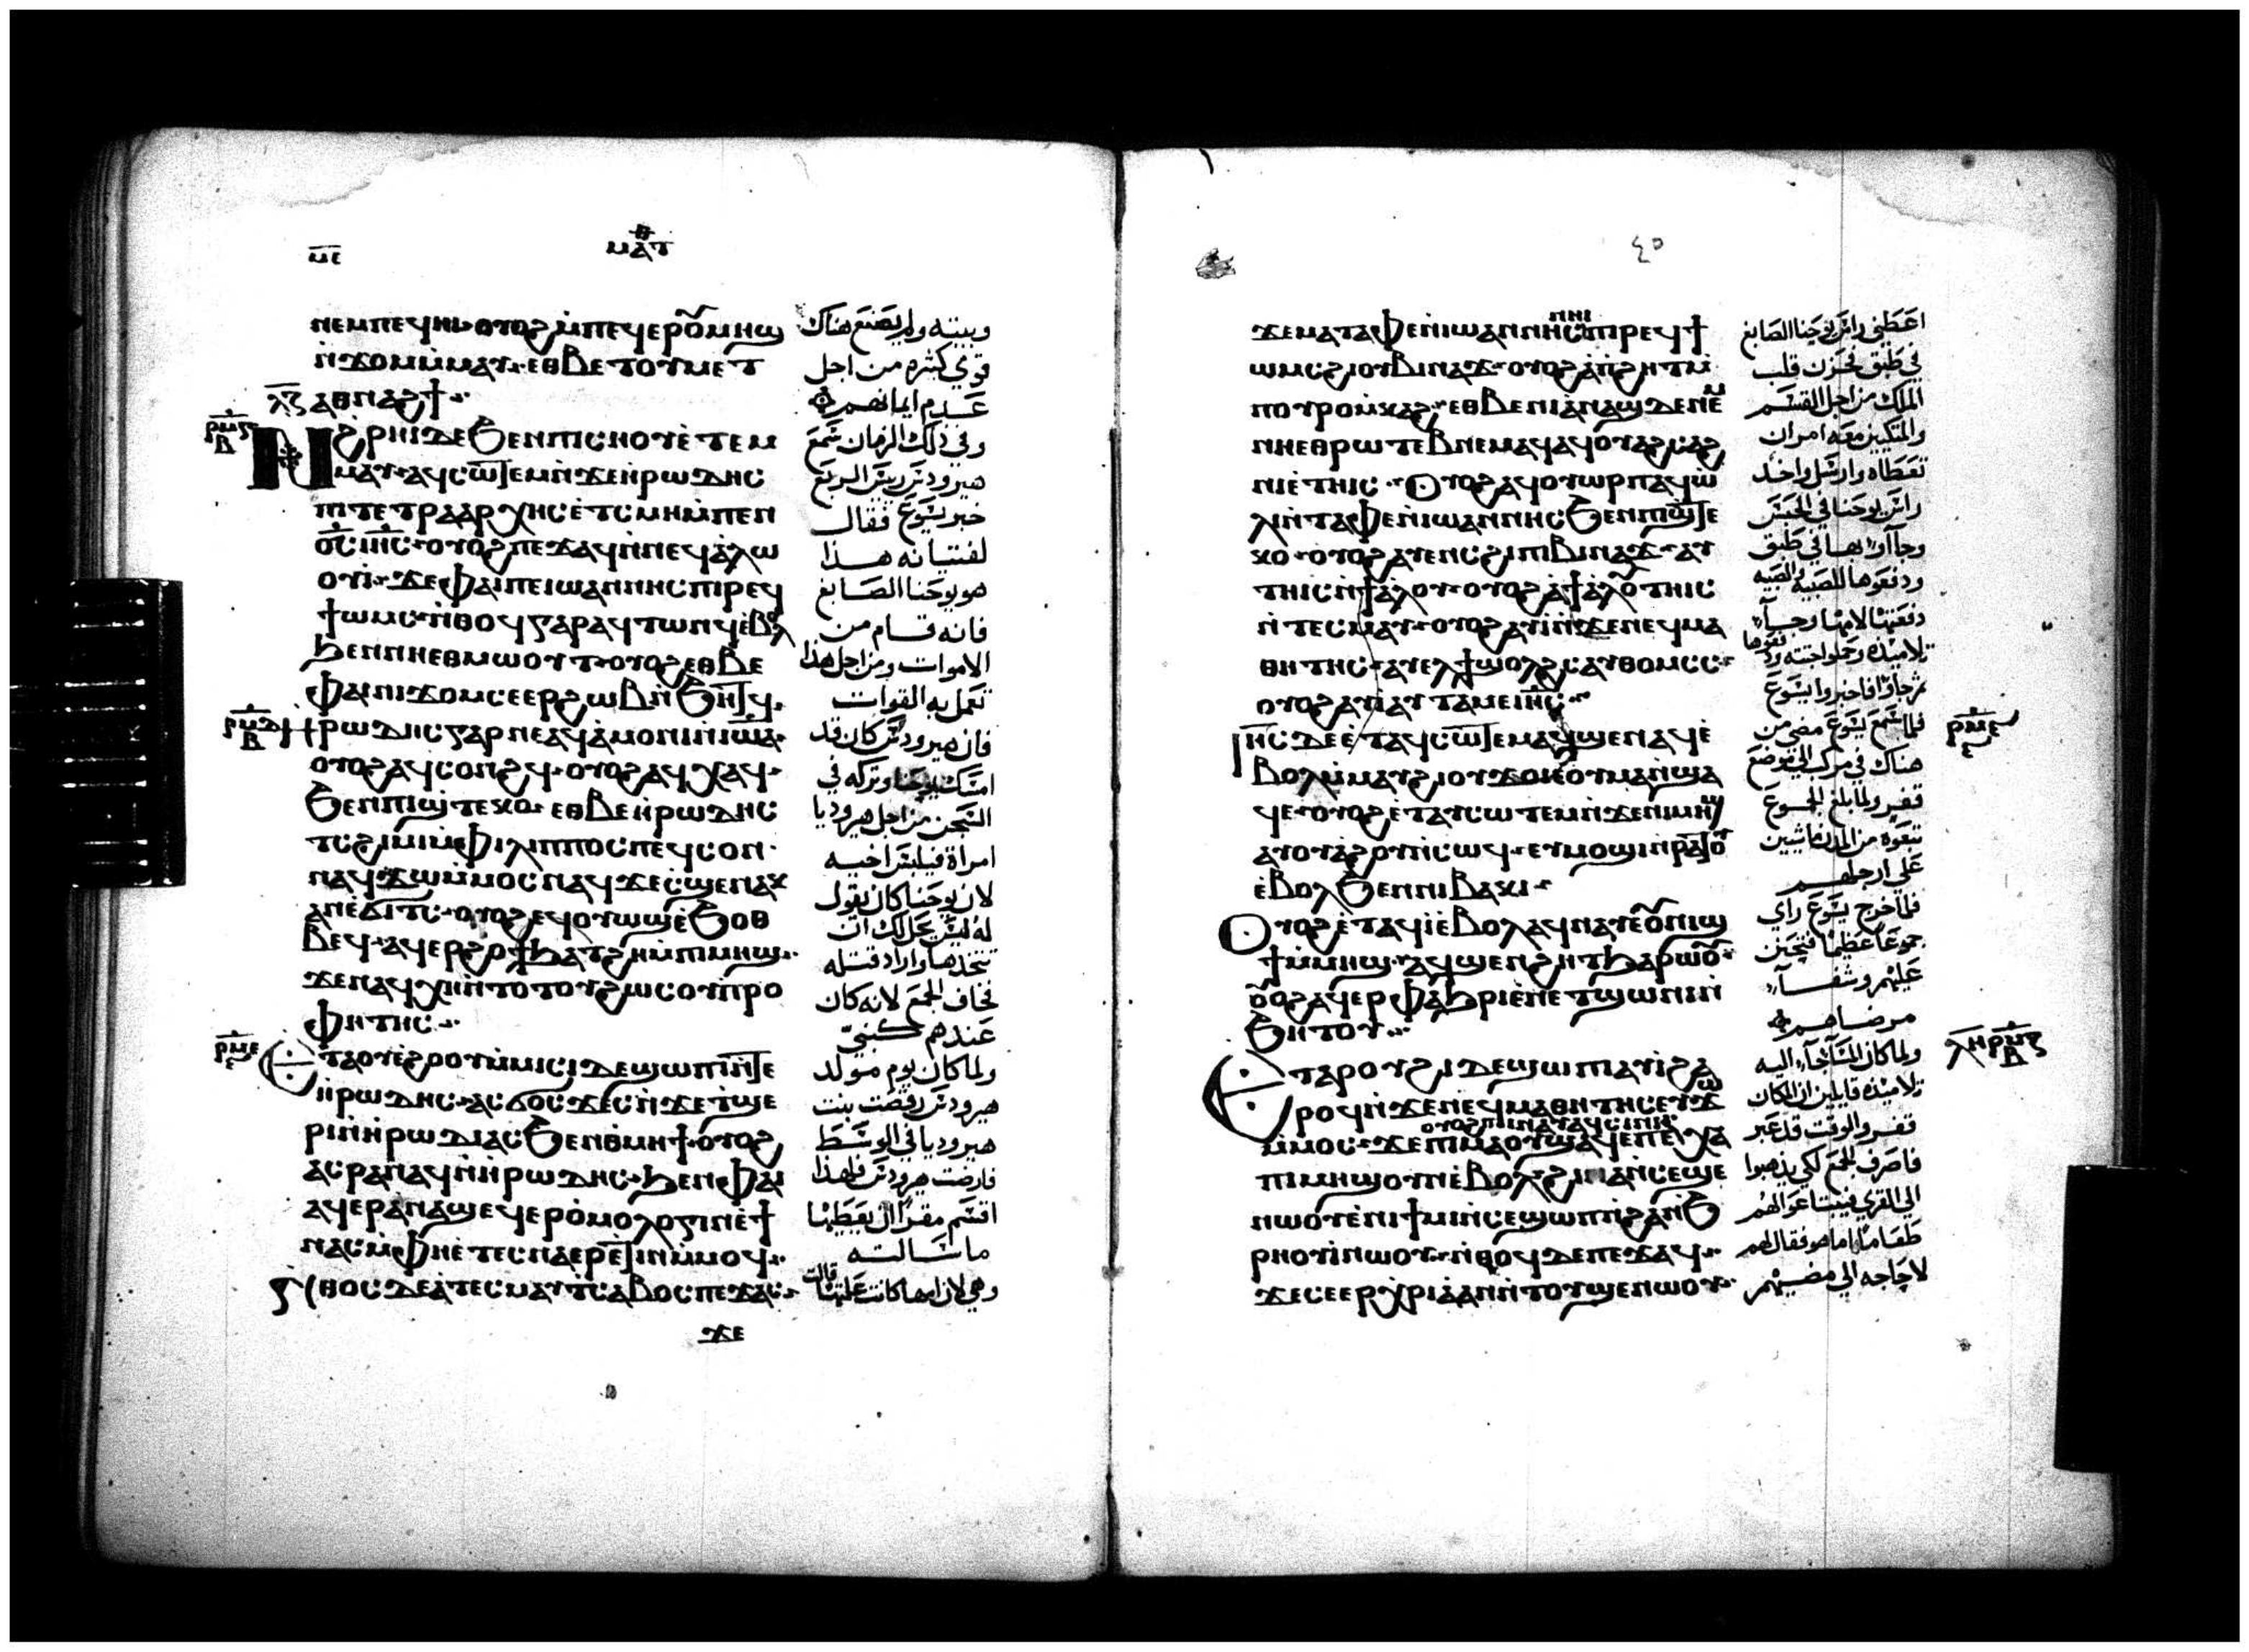 ⲙⲉ
ⲙⲁⲧ
ⲛⲉⲙⲡⲉϥⲏⲓ ⲟⲩⲟϩ ⲙⲡⲉϥⲉⲣⲟⲩⲙⲏϣ
ⲛϫⲟⲙ ⲙⲙⲁⲩ ⲉⲑⲃⲉ ⲧⲟⲩⲙⲉⲧ
ⲗⲍ ⲁⲑⲛⲁϩϯ
ⲣⲙⲅ
ⲃ
ⲛϩⲣⲏⲓ ⲇⲉ ϧⲉⲛ ⲡⲓⲥⲏⲟⲩ ⲉⲧⲉⲙ
ⲙⲁⲩ ⲁϥⲥⲱⲧⲉⲙ ⲛϫⲉ ⲏⲣⲱⲇⲏⲥ
ⲡⲓⲧⲉⲧⲣⲁⲁⲣⲭⲏⲥ ⲉⲧⲥⲙⲏ ⲙⲡⲉⲛ
ⲟⲥ ⲓⲏⲥ ⲟⲩⲟϩ ⲡⲉϫⲁϥ ⲛⲛⲉϥⲁⲗⲱ
ⲟⲩⲓ ϫⲉ ⲫⲁⲓ ⲡⲉ ⲓⲱⲁⲛⲛⲏⲥ ⲡⲓⲣⲉϥ
ϯⲱⲙⲥ ⲛⲑⲟϥ ⲅⲁⲣ ⲁϥⲧⲱⲛϥ ⲉⲃⲟⲗ
ϧⲉⲛ ⲛⲏⲉⲑⲙⲱⲟⲩⲧ ⲟⲩⲟϩ ⲉⲑⲃⲉ
ⲫⲁⲓ ⲛⲓϫⲟⲙ ⲥⲉⲉⲣϩⲱⲃ ⲛϧⲏⲧϥ
ⲣⲙⲇ
ⲃ
ⲏⲣⲱⲇⲏⲥ ⲅⲁⲣ ⲛⲉⲁϥⲁⲙⲟⲛⲓ ⲛⲓⲱⲁ
ⲟⲩⲟϩ ⲁϥⲥⲟⲛϩϥ ⲟⲩⲟϩ ⲁϥⲭⲁϥ
ϧⲉⲛ ⲡⲓϣⲧⲉⲕⲟ ⲉⲑⲃⲉ ⲏⲣⲱⲇⲏⲥ
ⲧⲥϩⲓⲙⲓ ⲙⲫⲓⲗⲓⲡⲡⲟⲥ ⲡⲉϥⲥⲟⲛ
ⲛⲁϥϫⲱ ⲙⲙⲟⲥ ⲛⲁϥ ϫⲉ ⲥϣⲉ ⲛⲁⲕ
ⲁⲛ ⲉϭⲓⲧⲥ ⲟⲩⲟϩ ⲉϥⲟⲩⲱϣ ⲉϧⲟⲑ
ⲃⲉϥ ⲁϥⲉⲣϩⲟϯ ϧⲁⲧϩⲏ ⲙⲡⲓⲙⲏϣ
ϫⲉ ⲛⲁϥⲭⲏ ⲛⲧⲟⲧⲟⲩ ϩⲱⲥ ⲟⲩⲡⲣⲟ
ⲫⲏⲧⲏⲥ
ⲣⲙⲉ
ⲉⲧⲁⲟⲩⲉϩⲟⲟⲩ ⲙⲙⲓⲥⲓ ⲇⲉ ϣⲱⲡⲓ ⲛⲧⲉ
ⲏⲣⲱⲇⲏⲥ ⲁⲥϭⲟⲥϫⲉⲥ ⲛϫⲉ ⲧϣⲉ
ⲣⲓ ⲛⲏⲣⲱⲇⲓⲁⲥ ϧⲉⲛ ⲑⲙⲏϯ ⲟⲩⲟϩ
ⲁⲥⲣⲁⲛⲁϥ ⲛⲏⲣⲱⲇⲏⲥ ϧⲉⲛ ⲫⲁⲓ
ⲁϥⲉⲣⲁⲛⲁϣ ⲉϥⲉⲣⲟⲙⲟⲗⲟⲅⲓⲛ ⲉϯ
ⲛⲁⲥ ⲙⲫⲏ ⲉⲧⲉⲥⲛⲁⲉⲣⲉⲧⲓⲛ ⲙⲙⲟϥ
ⲛⲑⲟⲥ ⲇⲉ ⲁⲧⲉⲥⲙⲁⲩ ⲧⲥⲁⲃⲟⲥ ⲡⲉϫⲁⲥ
ϫⲉ
وبيته ولم يصنع هناك
قوي كثيره من اجل
عدم ايمانهم
وفي ذلك الزمان سمع
هيرودس رييس الربع
خبر يسوع فقال
لفتيانه هذا
هو يوحنا الصابغ
فانه قام من
الاموات ومن اجل هذا
تعمل به القوات
فان هيرودس كان قد
امسك يوحنا وتركه في
السجن من اجل هيروديا
امراة فيلبس اخيه
لان يوحنا كان يقول
له ليس يحل لك ان
تتخذها واراد قتله
فخاف الجمع لانه كان
عندهم كنبي
ولما كان يوم مولد
هيرودس رقصت بنت
هيروديا في الوسط
فارضت هيرودس فلهذا
اقسم مقرا ان يعطيها
ما سالته
وهي لان امها كانت علمتها قالت
٤٥
ϫⲉ ⲙⲁ ⲧⲁⲫⲉ ⲛⲓⲱⲁⲛⲛⲏⲥ ⲛⲏⲓ ⲡⲓⲣⲉϥϯ
ⲱⲙⲥ ϩⲓ ⲟⲩⲃⲓⲛⲁϫ ⲟⲩⲟϩ ⲁⲡϩⲏⲧ ⲙ
ⲡⲟⲩⲣⲟ ⲙⲕⲁϩ ⲉⲑⲃⲉ ⲛⲓⲁⲛⲁϣ ⲇⲉ ⲛⲉⲙ
ⲛⲏⲉⲑⲣⲱⲧⲉⲃ ⲛⲉⲙⲁϥ ⲁϥⲟⲩⲁϩⲥⲁϩ
ⲛⲓ ⲉⲧⲏⲓⲥ ⲟⲩⲟϩ ⲁϥⲟⲩⲱⲣⲡ ⲁϥⲱ
ⲗⲓ ⲛⲧⲁⲫⲉ ⲛⲓⲱⲁⲛⲛⲏⲥ ϧⲉⲛ ⲡⲓϣⲧⲉ
ⲕⲟ ⲟⲩⲟϩ ⲁⲩⲉⲛⲥ ϩⲓ ⲡⲓⲃⲓⲛⲁϫ ⲁⲩ
ⲧⲏⲓⲥ ⲛϯⲁⲗⲟⲩ ⲟⲩⲟϩ ⲁϯⲁⲗⲟⲩ ⲧⲏⲓⲥ
ⲛⲧⲉⲥⲙⲁⲩ ⲟⲩⲟϩ ⲁⲩⲓ ⲛϫⲉ ⲛⲉϥⲙⲁ
ⲑⲏⲧⲏⲥ ⲁⲩⲉⲗ ϯϣⲟⲗϩⲥ ⲁⲩⲑⲟⲙⲥⲥ
ⲟⲩⲟϩ ⲁⲩⲓ ⲁⲩⲧⲁⲙⲉ ⲓⲏⲥ
ⲓⲏⲥ ⲇⲉ ⲉⲧⲁϥⲥⲱⲧⲉⲙ ⲁϥϣⲉⲛⲁϥ ⲉ
ⲃⲟⲗ ⲙⲙⲁⲩ ϩⲓ ⲟⲩϫⲟⲓ ⲉⲟⲩⲙⲁ ⲛϣⲁ
ϥⲉ ⲟⲩⲟϩ ⲉⲧⲁⲩⲥⲱⲧⲉⲙ ⲛϫⲉ ⲛⲓⲙⲏϣ
ⲁⲩⲟⲩⲁϩⲟⲩ ⲛⲥⲱϥ ⲉⲩⲙⲟϣⲓ ⲛⲣⲁⲧⲟⲩ
ⲉⲃⲟⲗ ϧⲉⲛ ⲛⲓⲃⲁⲕⲓ
ⲟⲩⲟϩ ⲉⲧⲁϥⲓ ⲉⲃⲟⲗ ⲁϥⲛⲁⲩ ⲉⲟⲩⲛⲓϣ
ϯ ⲙⲙⲏϣ ⲁϥϣⲉⲛϩⲏⲧ ϧⲁⲣⲱⲟⲩ
ⲟⲩⲟϩ ⲁϥⲉⲣⲫⲁϧⲣⲓ ⲉⲛⲉⲧϣⲱⲛⲓ ⲛ
ϧⲏⲧⲟⲩ
ⲉⲧⲁⲣⲟⲩϩⲓ ⲇⲉ ϣⲱⲡⲓ ⲁⲩⲓ ϩⲁ
ⲣⲟϥ ⲛϫⲉ ⲛⲉϥⲙⲁⲑⲏⲧⲏⲥ ⲉⲩϫⲱ
ⲟⲩⲟϩ ⲡⲓⲛⲁⲩ ⲁϥⲥⲓⲛⲓ
ⲙⲙⲟⲥ ϫⲉ ⲡⲓⲙⲁ ⲟⲩϣⲁϥⲉ ⲡⲉ ⲭⲁ
ⲡⲓⲙⲏϣ ⲟⲩⲛ ⲉⲃⲟⲗ ϩⲓⲛⲁ ⲛⲥⲉϣⲉ
ⲛⲱⲟⲩ ⲉⲛⲓϯⲙⲓ ⲛⲥⲉϣⲱⲡ ⲛϩⲁⲛϧ
ⲣⲏⲟⲩⲓ ⲛⲱⲟⲩ ⲛⲑⲟϥ ⲇⲉ ⲡⲉϫⲁϥ
ϫⲉ ⲥⲉⲉⲣⲭⲣⲓⲁ ⲁⲛ ⲛⲧⲟⲩϣⲉⲛⲱⲟⲩ
اعطني راس يوحنا الصابغ
في طبق فحزن قلب
الملك من اجل القسم
والمتكيين معه امر ان
تعطاه وارسل واخذ
راس يوحنا في الحبس
وجآوا بها في طبق
ودفعوها للصبيه والصبيه
دفعتها لامها وجآ
تلاميذه وحملوا جثته ودفنوها
ثم جآوا فاخبروا يسوع
فلما سمع يسوع مضي من
هناك في مركب الي موضع
قفر ولما بلغ الجموع
تبعوه من المدن ماشيين
علي ارجلهم
فلما خرج يسوع راي
جموعا عظيما فتحنن
عليهم وشفآ
مرضاهم
ولما كان المسآ جآ اليه
تلاميذه قايلين ان المكان
قفر والوقت قد عبر
فاصرف الجمع لكي يذهبوا
الي القري فيبتاعوا لهم
طعاما اما هو فقال لهم
لا حاجه الي مضيهم
ⲣⲙⲋ
ⲗⲏ ⲣⲙⲍ
ⲃ